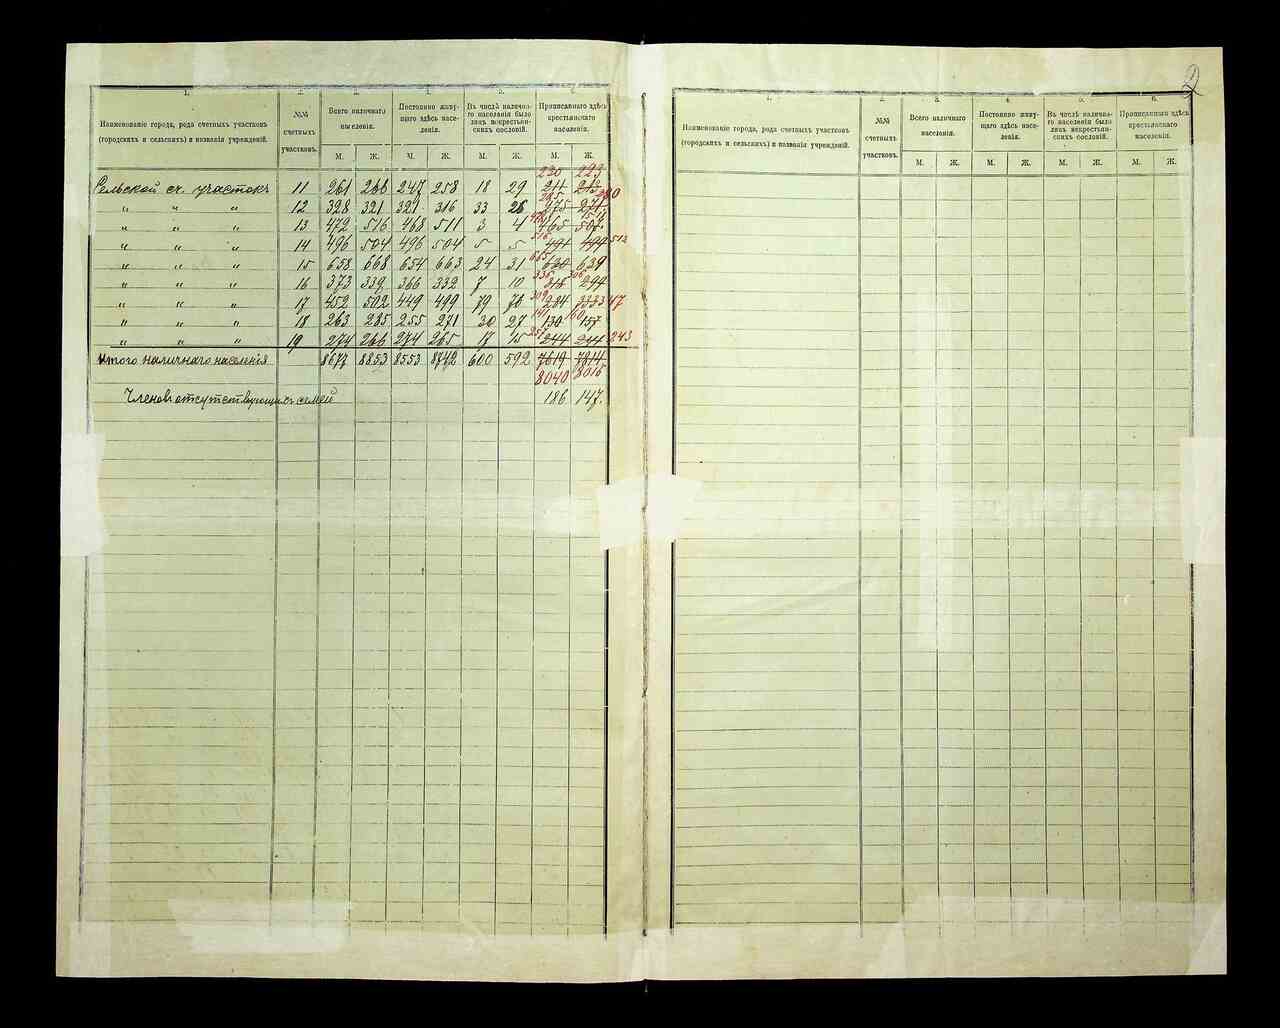 2
1. 2. 3. 4. 5. 6.
Наименованіе города, рода счетныхъ участковъ (городскихъ и сельскихъ) и названія учрежденій.
№№ счетныхъ участковъ.
Всего наличнаго населенія.
Постоянно живущаго здѣсь населенія.
Въ числѣ наличнаго населенія было лицъ некрестьянскихъ сословій.
Приписаннаго здѣсь крестьянскаго населенія.
М. Ж. М. Ж. М. Ж. М. Ж.
230 223
Сельской сч. участокъ 11 261 266 247 258 18 29 211 213
" " " 12 328 321 321 316 33 28 275 271
" " " 13 472 516 468 511 3 4 465 507
" " " 14 496 504 496 504 5 5 491 499 512
" " " 15 658 668 654 663 24 31 630 639
" " " 16 373 339 366 332 7 10 315 299
" " " 17 452 502 449 499 79 76 284
" " " 18 263 285 255 271 30 27 130 157
" " " 19 274 266 274 265 17 15 244 244 243
Итого наличнаго населенія 8677 8853 8553 8742 600 592 7619 7814
8040 8015
Членовъ отсутствующихъ семей 186 147.
1. 2. 3. 4. 5. 6.
Наименованіе города, рода счетныхъ участковъ (городскихъ и сельскихъ) и названія учрежденій.
№№ счетныхъ участковъ.
Всего наличнаго населенія.
Постоянно живущаго здѣсь населенія.
Въ числѣ наличнаго населенія было лицъ некрестьянскихъ сословій.
Приписаннаго здѣсь крестьянскаго населенія.
М. Ж. М. Ж. М. Ж. М. Ж.